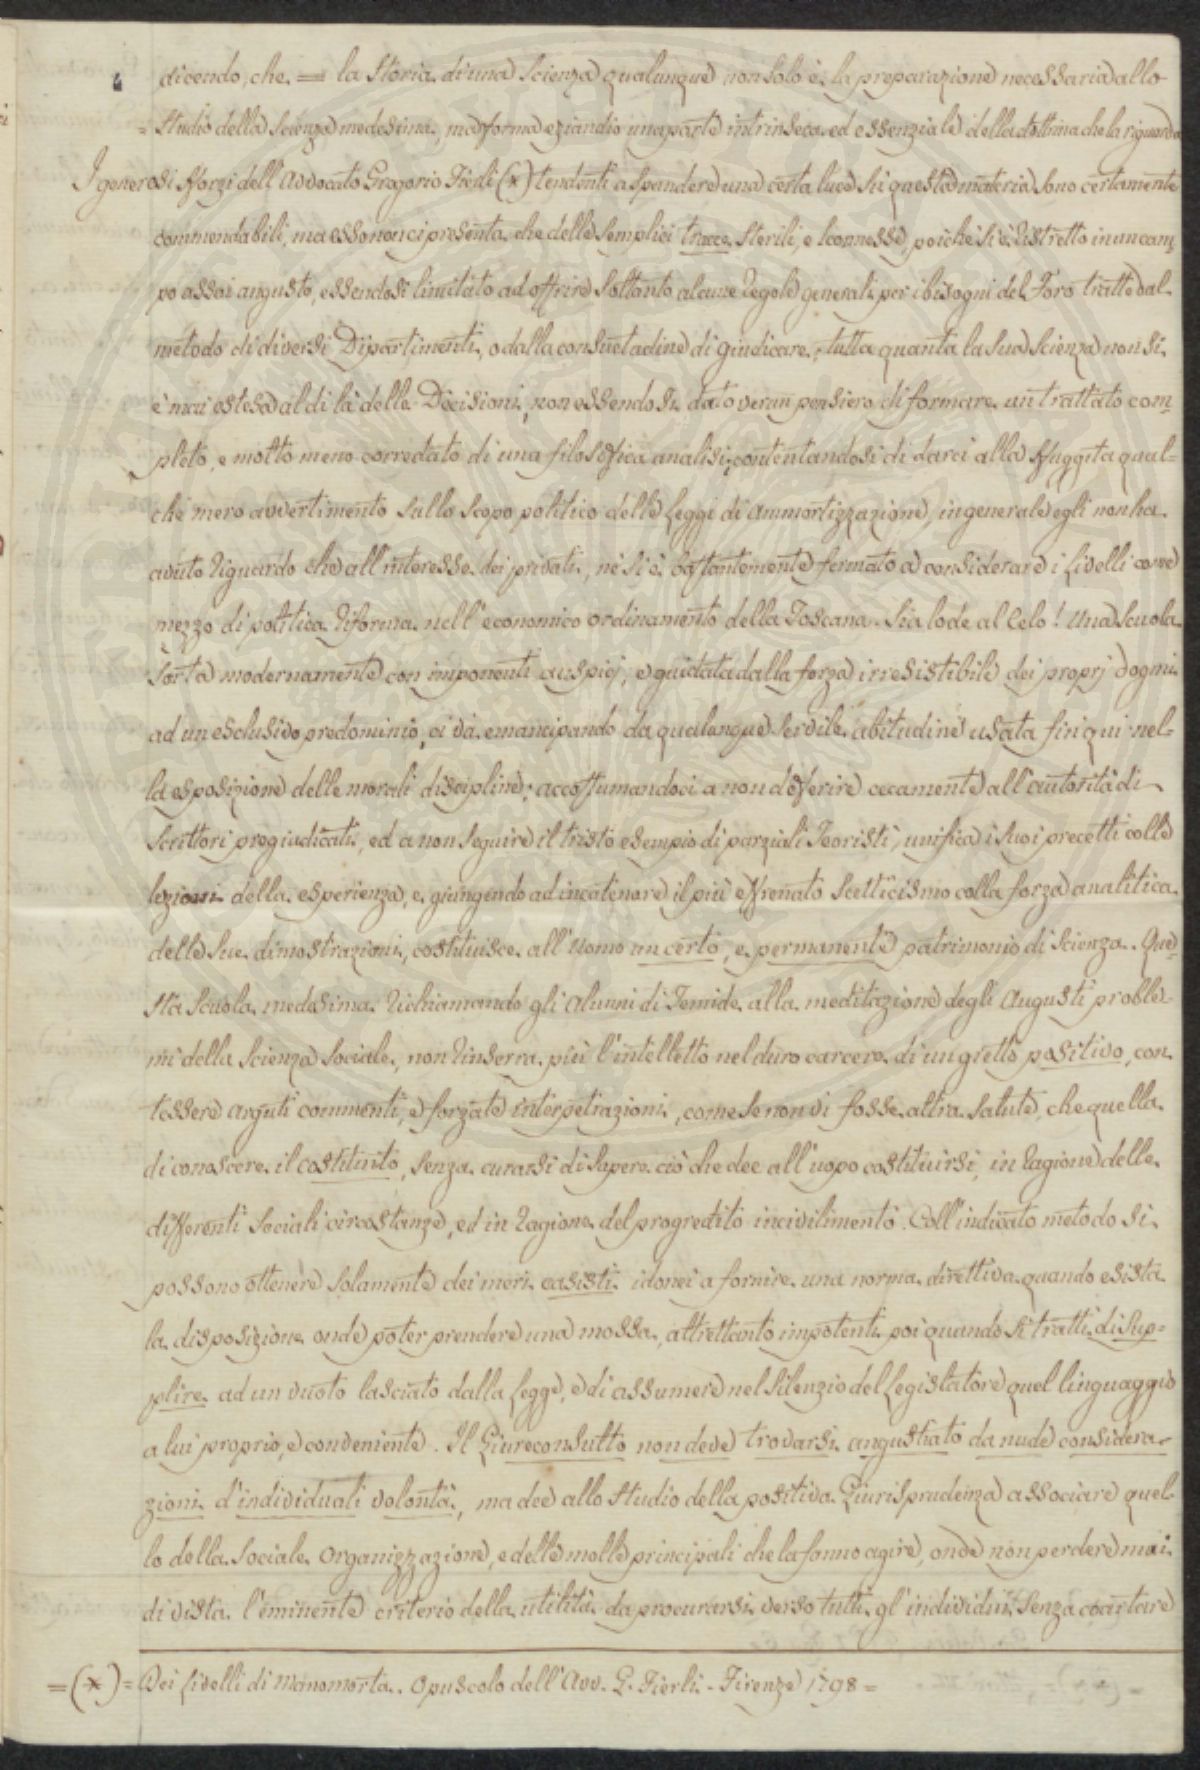 dicendo, che = la Storia di una Scienza qualunque non solo è la preparazione necessaria allo
= Studio della Scienza medesima, ma forma eziandio una parte intrinseca ed essenziale della dottrina che la riguarda
I generosi sforzi dell'Avvocato Gregorio Fierli (*) tendenti a spandere una certa luce su questa materia sono certamente
commendabili, ma esso non ci presenta che delle semplici tracce sterili, e sconnesse, poichè si è ristretto in un cam-
po assai angusto, essendosi limitato ad offrire soltanto alcune regole generali per i bisogni del Foro tratte dal
metodo di diversi Dipartimenti, o dalla consuetudine di giudicare; tutta quanta la sua Scienza non si
è mai estesa al di là delle Decisioni, non essendosi dato verun pensiero di formare un trattato com-
pleto, e molto meno corredato di una filosofica analisi; contentandosi di darci alla sfuggita qual-
che mero avvertimento sullo scopo politico delle Leggi di Ammortizzazione, in generale egli non ha
avuto riguardo che all'interesse dei privati, nè si è bastantemente fermato a considerare i Livelli come
mezzo di politica riforma nell'economico ordinamento della Toscana. Sia lode al Celo! Una Scuola
sorta modernamente con imponenti auspicj, e guidata dalla forza irresistibile dei proprj dogmi
ad un esclusivo predominio, ci và emancipando da qualunque servile abitudine usata fin qui nel-
la esposizione delle morali discipline; accostumandoci a non deferire cecamente all'autorità di
Scrittori pregiudicati, ed a non seguire il tristo esempio di parziali Teoristi, unifica i suoi precetti colle
lezioni della esperienza, e giungendo ad incatenare il più effrenato scetticismo colla forza analitica
delle sue dimostrazioni, costituisce all'Uomo un certo, e permanente patrimonio di Scienza. Que-
sta Scuola medesima richiamando gli Alunni di Temide alla meditazione degli Augusti proble-
mi della Scienza Sociale, non rinserra più l'intelletto nel duro carcere di un gretto positivo, con
tessere arguti commenti, e forzate interpetrazioni, come se non vi fosse altra salute, che quella
di conoscere il costituito, senza curarsi di sapere ciò che dee all'uopo costituirsi, in ragione delle
differenti sociali circostanze, ed in ragione del progredito incivilimento. Coll'indicato metodo si
possono ottenere solamente dei meri casisti idonei a fornire una norma direttiva quando esista
la disposizione onde poter prendere una mossa, altrettanto impotenti poi quando si tratti di sup-
plire ad un vuoto lasciato dalla Legge, e di assumere nel silenzio del Legislatore quel linguaggio
a lui proprio, e conveniente. Il Giureconsulto non deve trovarsi angustiato da nude considera-
zioni d'individuali volontà, ma dee allo studio della positiva Giurisprudenza associare quel-
lo della Sociale Organizzazione, e delle molle principali che la fanno agire, onde non perdere mai
di vista l'eminente criterio della utilità da procurarsi verso tutti gl'individui senza coartare
=(*)= Dei Livelli di Manomorta. Opuscolo dell'Avv. G. Fierli - Firenze 1798 =